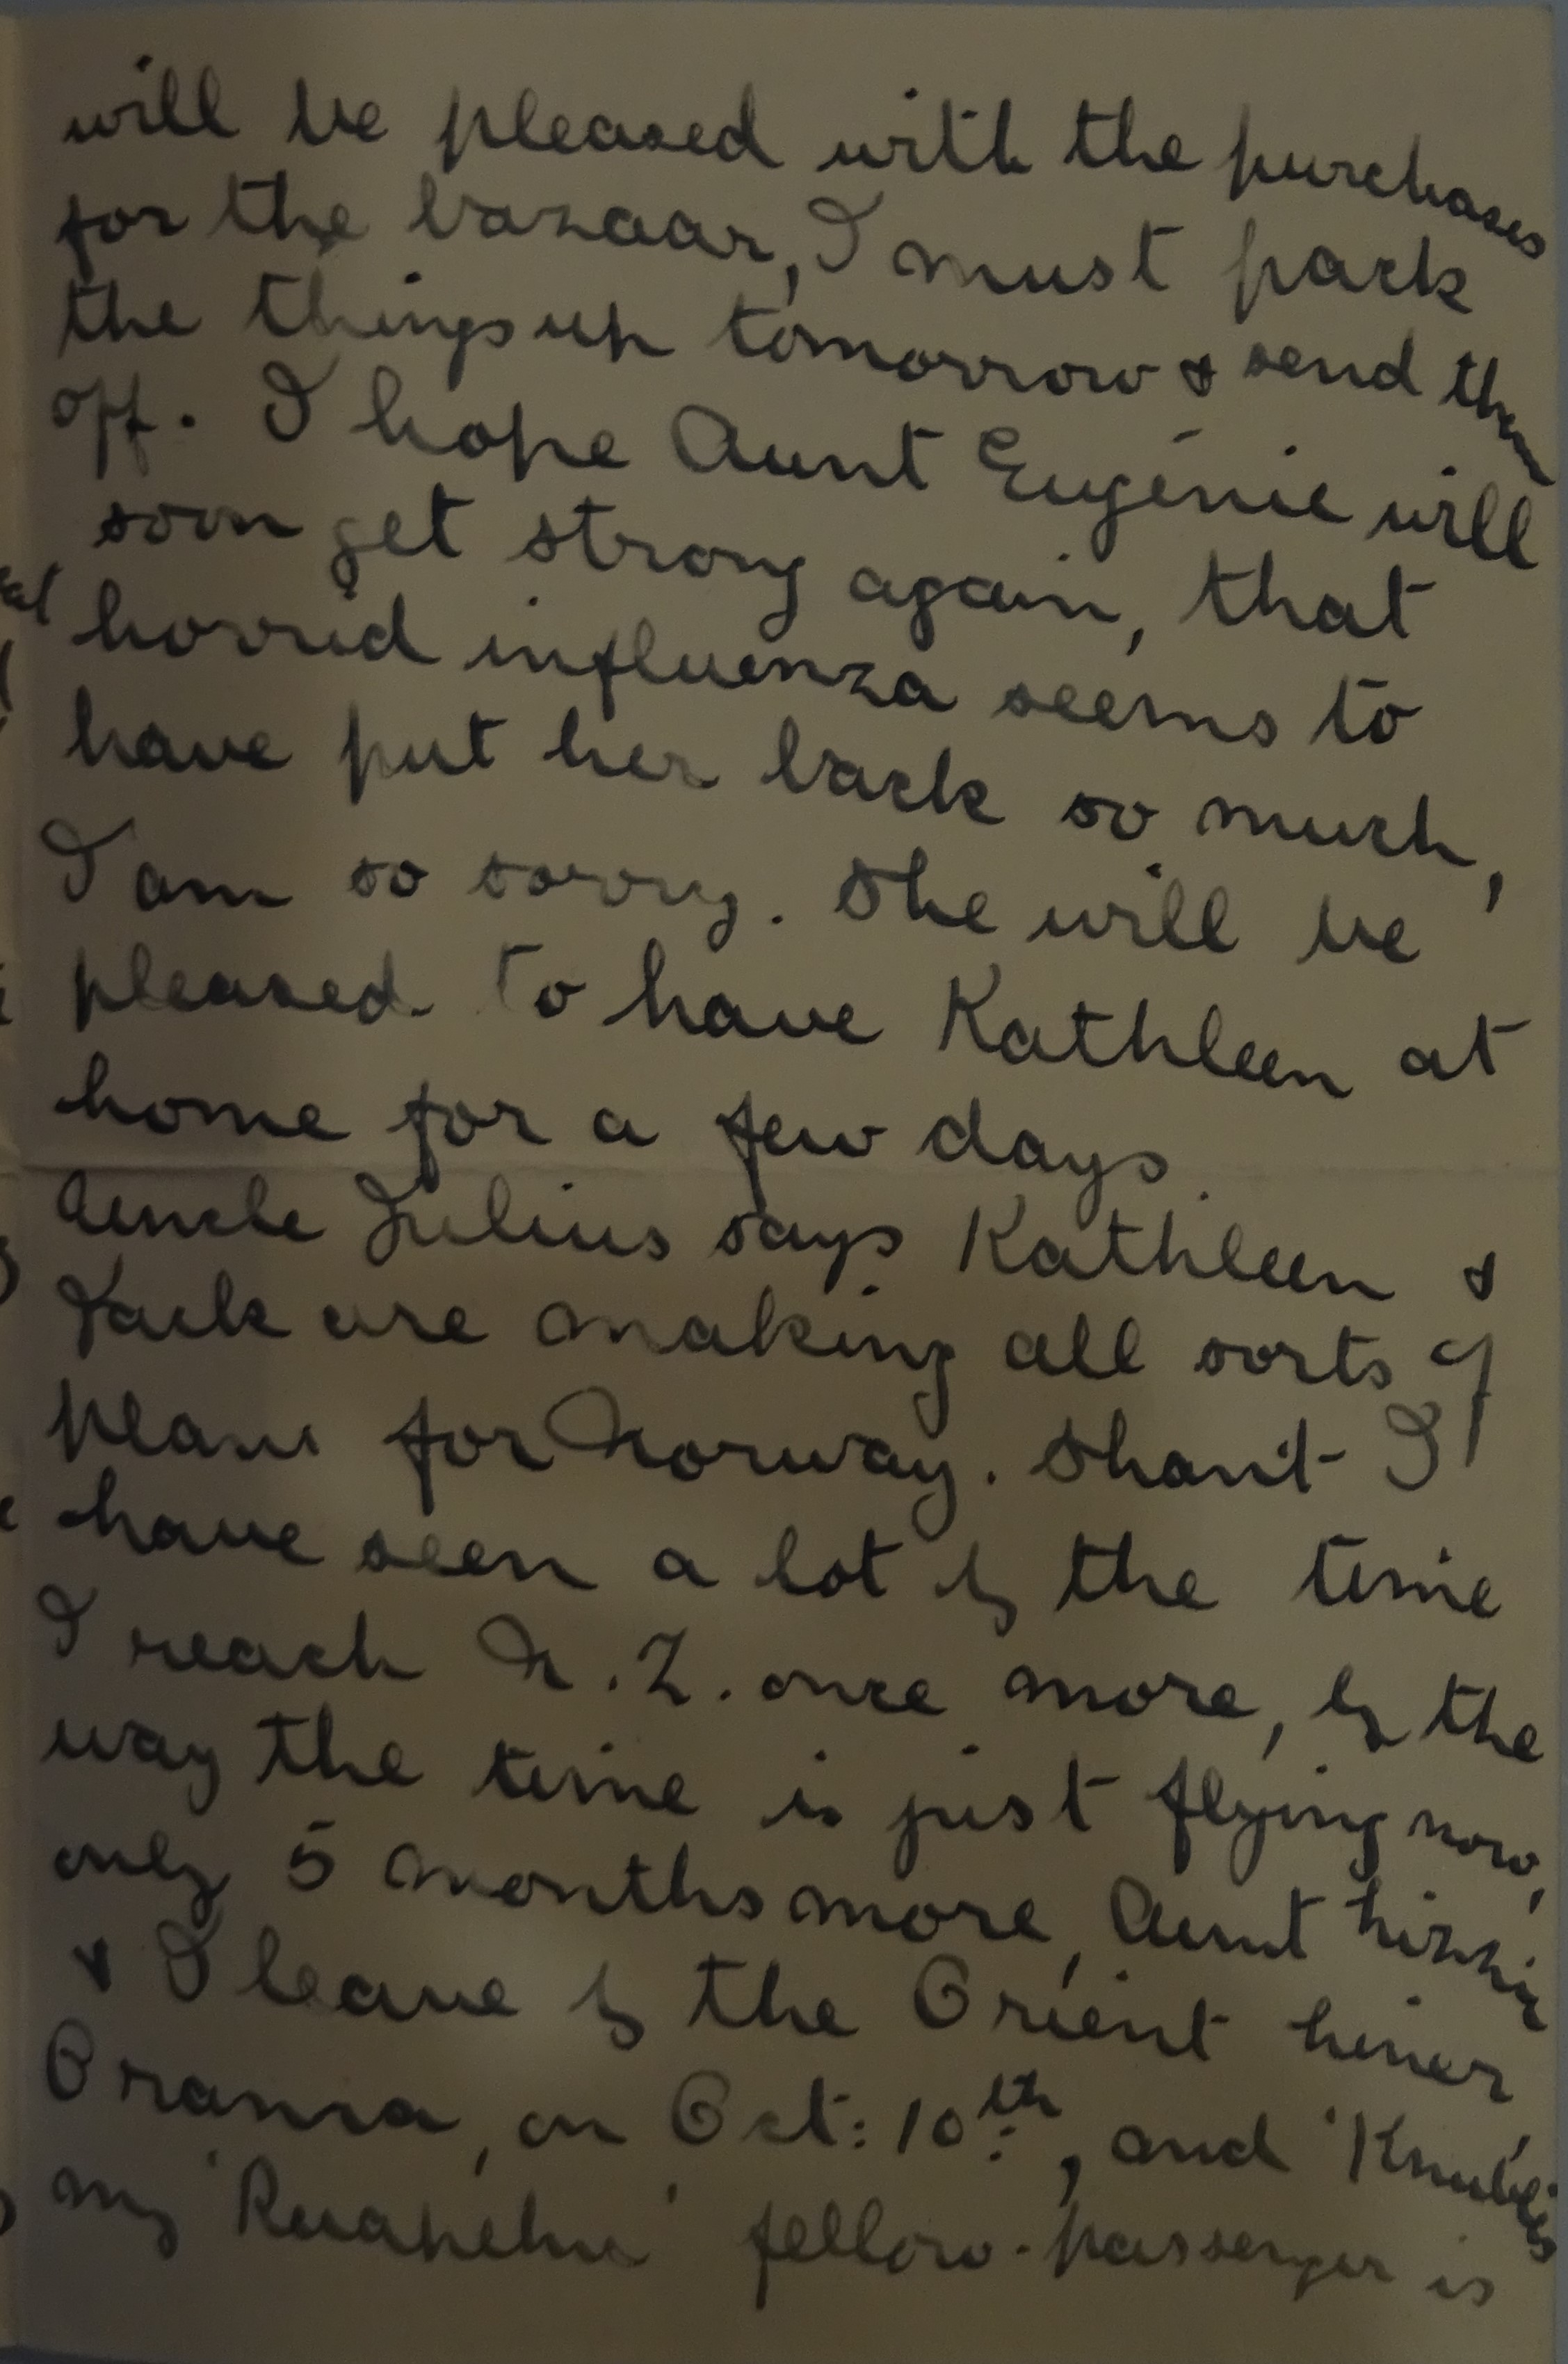 will be pleased with the purchases
for the bazaar, I must pack
the things up tomorrow & send them
off. I hope Aunt Eugénie will
soon get strong again, that
horrid influenza seems to
have put her back so much,
I am so sorry. She will be
pleased to have Kathleen at
home for a few days.
Uncle Julius says Kathleen &
Jack are making all sorts of
plans for Norway. Shan't I
have seen a lot by the time
I reach N.Z. once more, by the
way the time is just flying now,
only 5 months more, Aunt Lizzie
& I leave by the Orient liner,
Orama, on Oct: 10th, and
my 'Ruapehu' fellow-passenger is